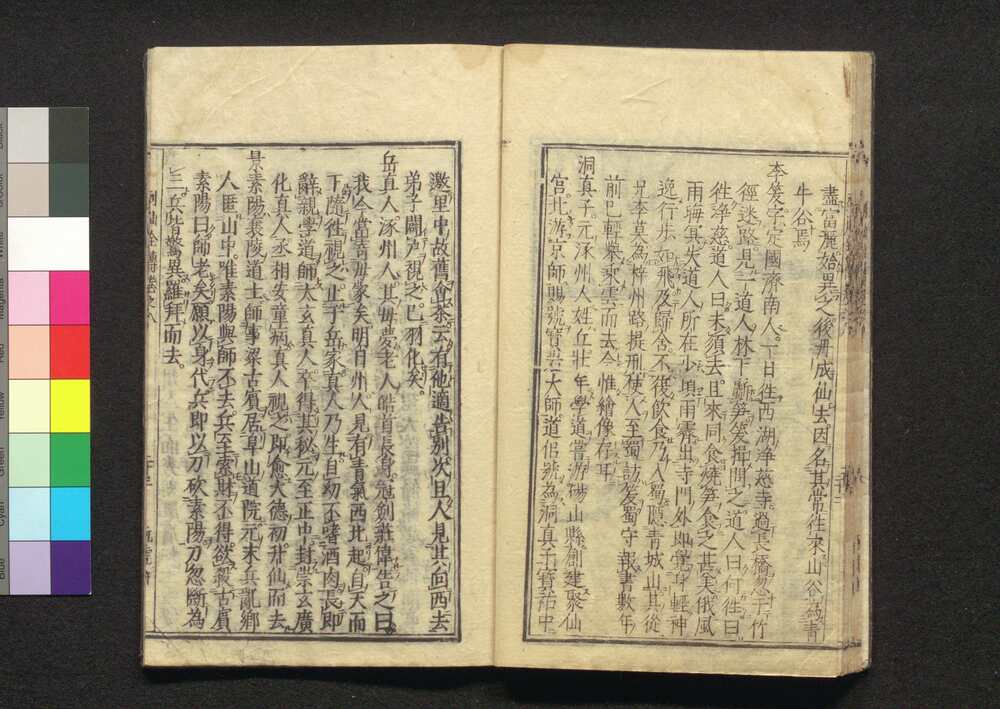 盡富麗始異之後丹成仙去因名其常往來山谷為書
牛谷焉
李笈字定國濟南人一日往西湖淨慈寺過長橋忽于竹
徑迷路見一道人林下斸笋笈揖問之道人曰何往曰
往淨慈道人曰未須去且來同食燒笋食之甚美俄風
雨晦冥失道人所在少頃雨霽出寺門外即覺身輕神
逸行步如飛及歸舍不復飲食乃入蜀隱青城山其從
兄李莫為梓州路提刑使人至蜀訪笈蜀守報書數年
前已輕舉乘雲而去今惟繪像存耳
洞真子元涿州人姓丘壯年學道嘗游碭山縣創建聚仙
宮北游京師賜號寶
大師道侶號為洞真子寶祐中
邀里中故舊會茶云有他適告別次旦人見其向西去
弟子闢戶視之已羽化矣
岳真人涿州人其母夢老人皓首長身冠劍莊偉告之曰
我今當寄母家矣明日州人見有青氣西北起自天而
下隨往視之止于岳家真人乃生自幼不嗜酒肉長即
辭親學道師太玄真人卒得其秘元至正中封崇玄廣
化真人丞相安童病真人視之即愈大德初升仙而去
景素陽襄陵道士師事梁古賓居阜山道院元末兵亂鄉
人匿山中唯素陽與師不去兵至索財不得欲殺古賓
素陽曰師老矣願以身代兵即以刀砍素陽刀忽斷為
三兵皆驚異羅拜而去
列仙全傳卷之八